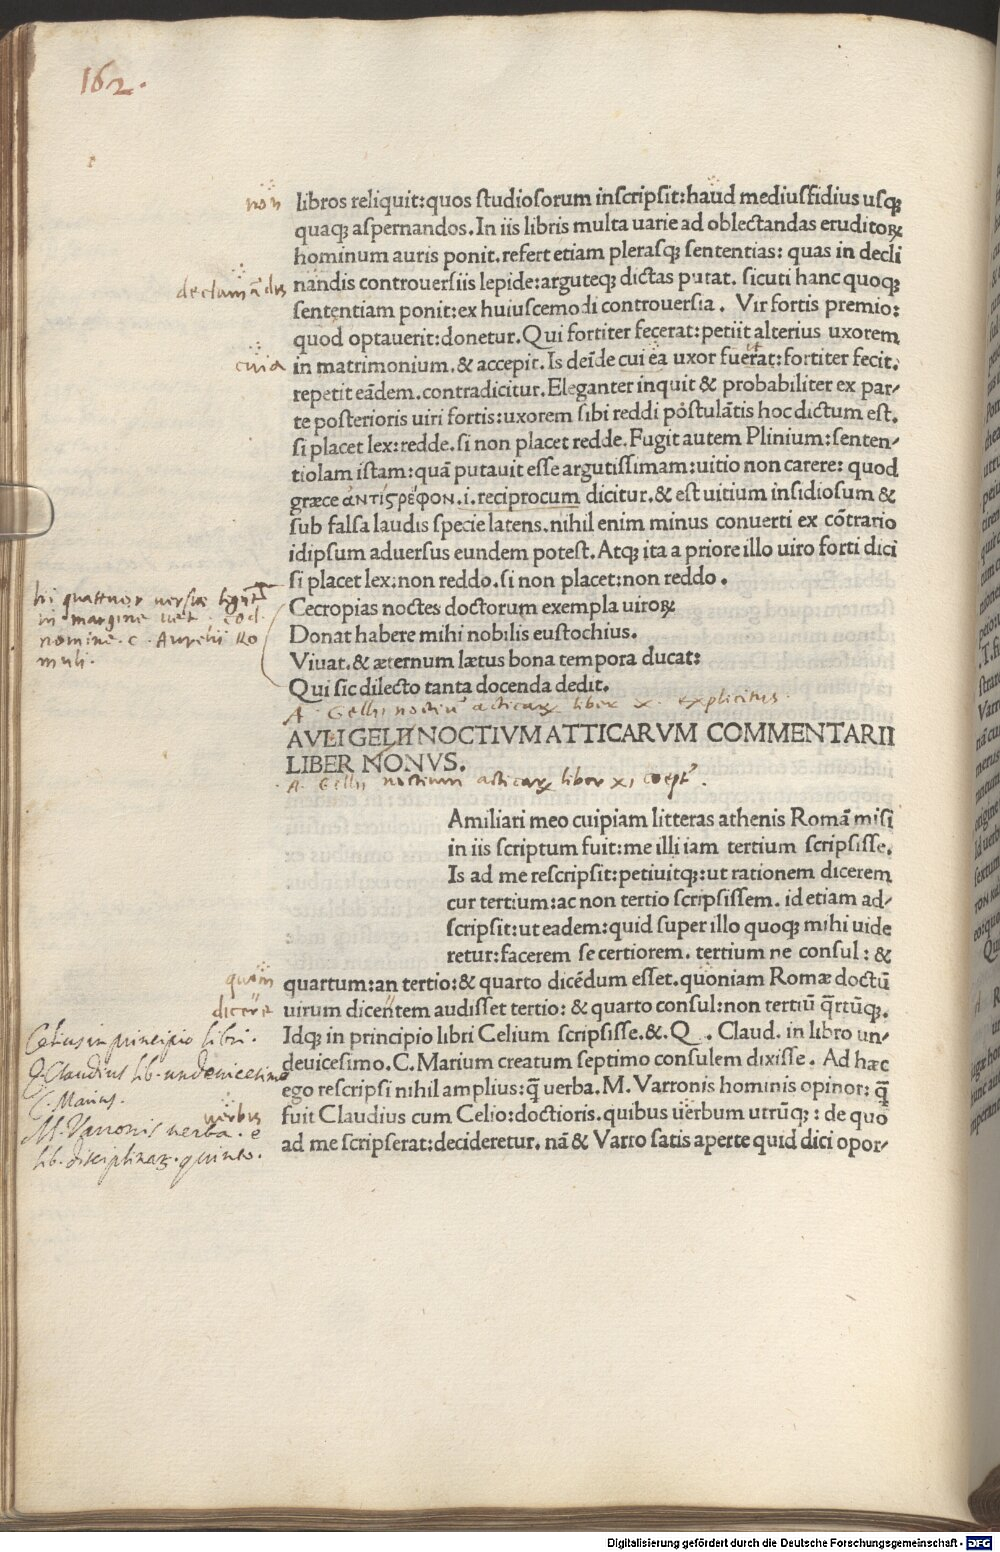 162.
non
libros reliquit:quos studiosorum inscripsit:haud mediusfidius usqꝫ
quaqꝫ aspernandos. In iis libris multa uarie ad oblectandas eruditoꝝ
hominum auris ponit. refert etiam plerasqꝫ sententias: quas in decli
declamãdis
nandis controuersiis lepide:arguteqꝫ dictas putat. sicuti hanc quoqꝫ
sententiam ponit:ex huiuscemodi controuersia. Vir fortis premio:
quod optauerit:donetur. Qui fortiter fecerat:petiit alterius uxorem
cuia
in matrimonium. & accepit. Is deĩde cui ea uxor fuerat:fortiter fecit.
repetit eãdem. contradicitur. Eleganter inquit & probabiliter ex par/
te posterioris uiri fortis:uxorem sibi reddi postulãtis hoc dictum est.
si placet lex:redde. si non placet redde. Fugit autem Plinium:senten/
tiolam istam:quã putauit esse argutissimam:uitio non carere: quod
græce ἀντίϛρέφον.i.reciprocum dicitur. & est uitium insidiosum &
sub falsa laudis specie latens. nihil enim minus conuerti ex cõtrario
idipsum aduersus eundem potest. Atqꝫ ita a priore illo uiro forti dici
si placet lex:non reddo. si non placet:non reddo.
hi quattuor versus
in margine uet. cod.
nomine. C. Aurelii Ro
muli.
Cecropias noctes doctorum exempla uiroꝝ
Donat habere mihi nobilis eustochius.
Viuat. & æternum lætus bona tempora ducat:
Qui sic dilecto tanta docenda dedit.
A. Gellii noctiũ atticaꝝ liber x. explicitus
AVLI GELII NOCTIVM ATTICARVM COMMENTARII
LIBER NONVS.
A. Gellii noctium atticaꝝ liber XI
Amiliari meo cuipiam litteras athenis Romã misi
in iis scriptum fuit:me illi iam tertium scripsisse.
Is ad me rescripsit:petiuitqꝫ:ut rationem dicerem
cur tertium:ac non tertio scripsissem. id etiam ad/
scripsit:ut eadem:quid super illo quoqꝫ mihi uide
retur:facerem se certiorem. tertium ne consul: &
quom
quartum:an tertio:& quarto dicẽdum esset. quoniam Romæ doctũ
dicere
uirum dicentem audisset tertio: & quarto consul:non tertiũ q̃rtũqꝫ.
Celius in principio libri.
Idqꝫ in principio libri Celium scripsisse. &. Q. Claud. in libro un/
Q. Claudius lib. undeuicesimo
deuicesimo. C. Marium creatum septimo consulem dixisse. Ad hæc
C. Marius.
ego rescripsi nihil amplius:q̃ uerba. M. Varronis hominis opinor: q̃
uerbis
fuit Claudius cum Celio:doctioris. quibus uerbum utrũqꝫ: de quo
M. Varronis uerba. e
ad me scripserat:decideretur. nã & Varro satis aperte quid dici opor/
lib. disciplinaꝝ. quinto.
Digitalisierung gefördert durch die Deutsche Forschungsgemeinschaft - DFG